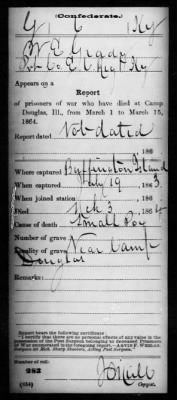 (Confederate.)
G 6 Ky
W E Grady
Appears on a
Report
of prisoners of war who have died at Camp
Douglas, Ill., from March 1 to March 15,
1864.
Report dated Not dated
186
Where captured Buffington Island
When captured July 19 , 186 3
When joined station , 186
Died Mch 3 186 4
Cause of death Small Pox
Number of grave
Locality of grave Near Camp
Douglas
Remarks:
Report bears the following certificate
"I certify that there are no personal effects of any value in the
possession of the Post Surgeon belonging to deceased Prisoners
of War enumerated in the foregoing report.
Number of roll:
(654)
Copyist.